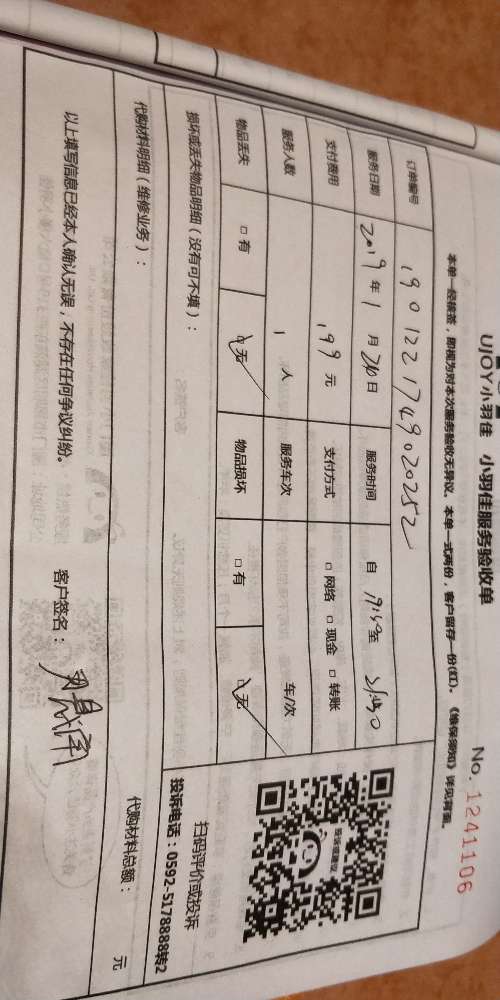 UJOY 小羽佳 小羽佳服务验收单
No. 1241106
本单一经核签，即视为对本次服务验收无异议。本单一式两份，客户留存一份(红)。《维保须知》详见背面。
订单编号 1901221749020252
服务日期 2019 年 1 月 日 服务时间 自 至
支付费用 199 元 支付方式 □ 网络 □ 现金 □ 转账
服务人数 1 人 服务车次 车/次
物品丢失 □ 有 □ 无 物品损坏 □ 有 □ 无
扫码评价或投诉
投诉电话：0592-5178888转2
损坏或丢失物品明细（没有可不填）：
代购材料明细（维修业务）：
代购材料总额： 元
以上填写信息已经本人确认无误，不存在任何争议纠纷。 客户签名：